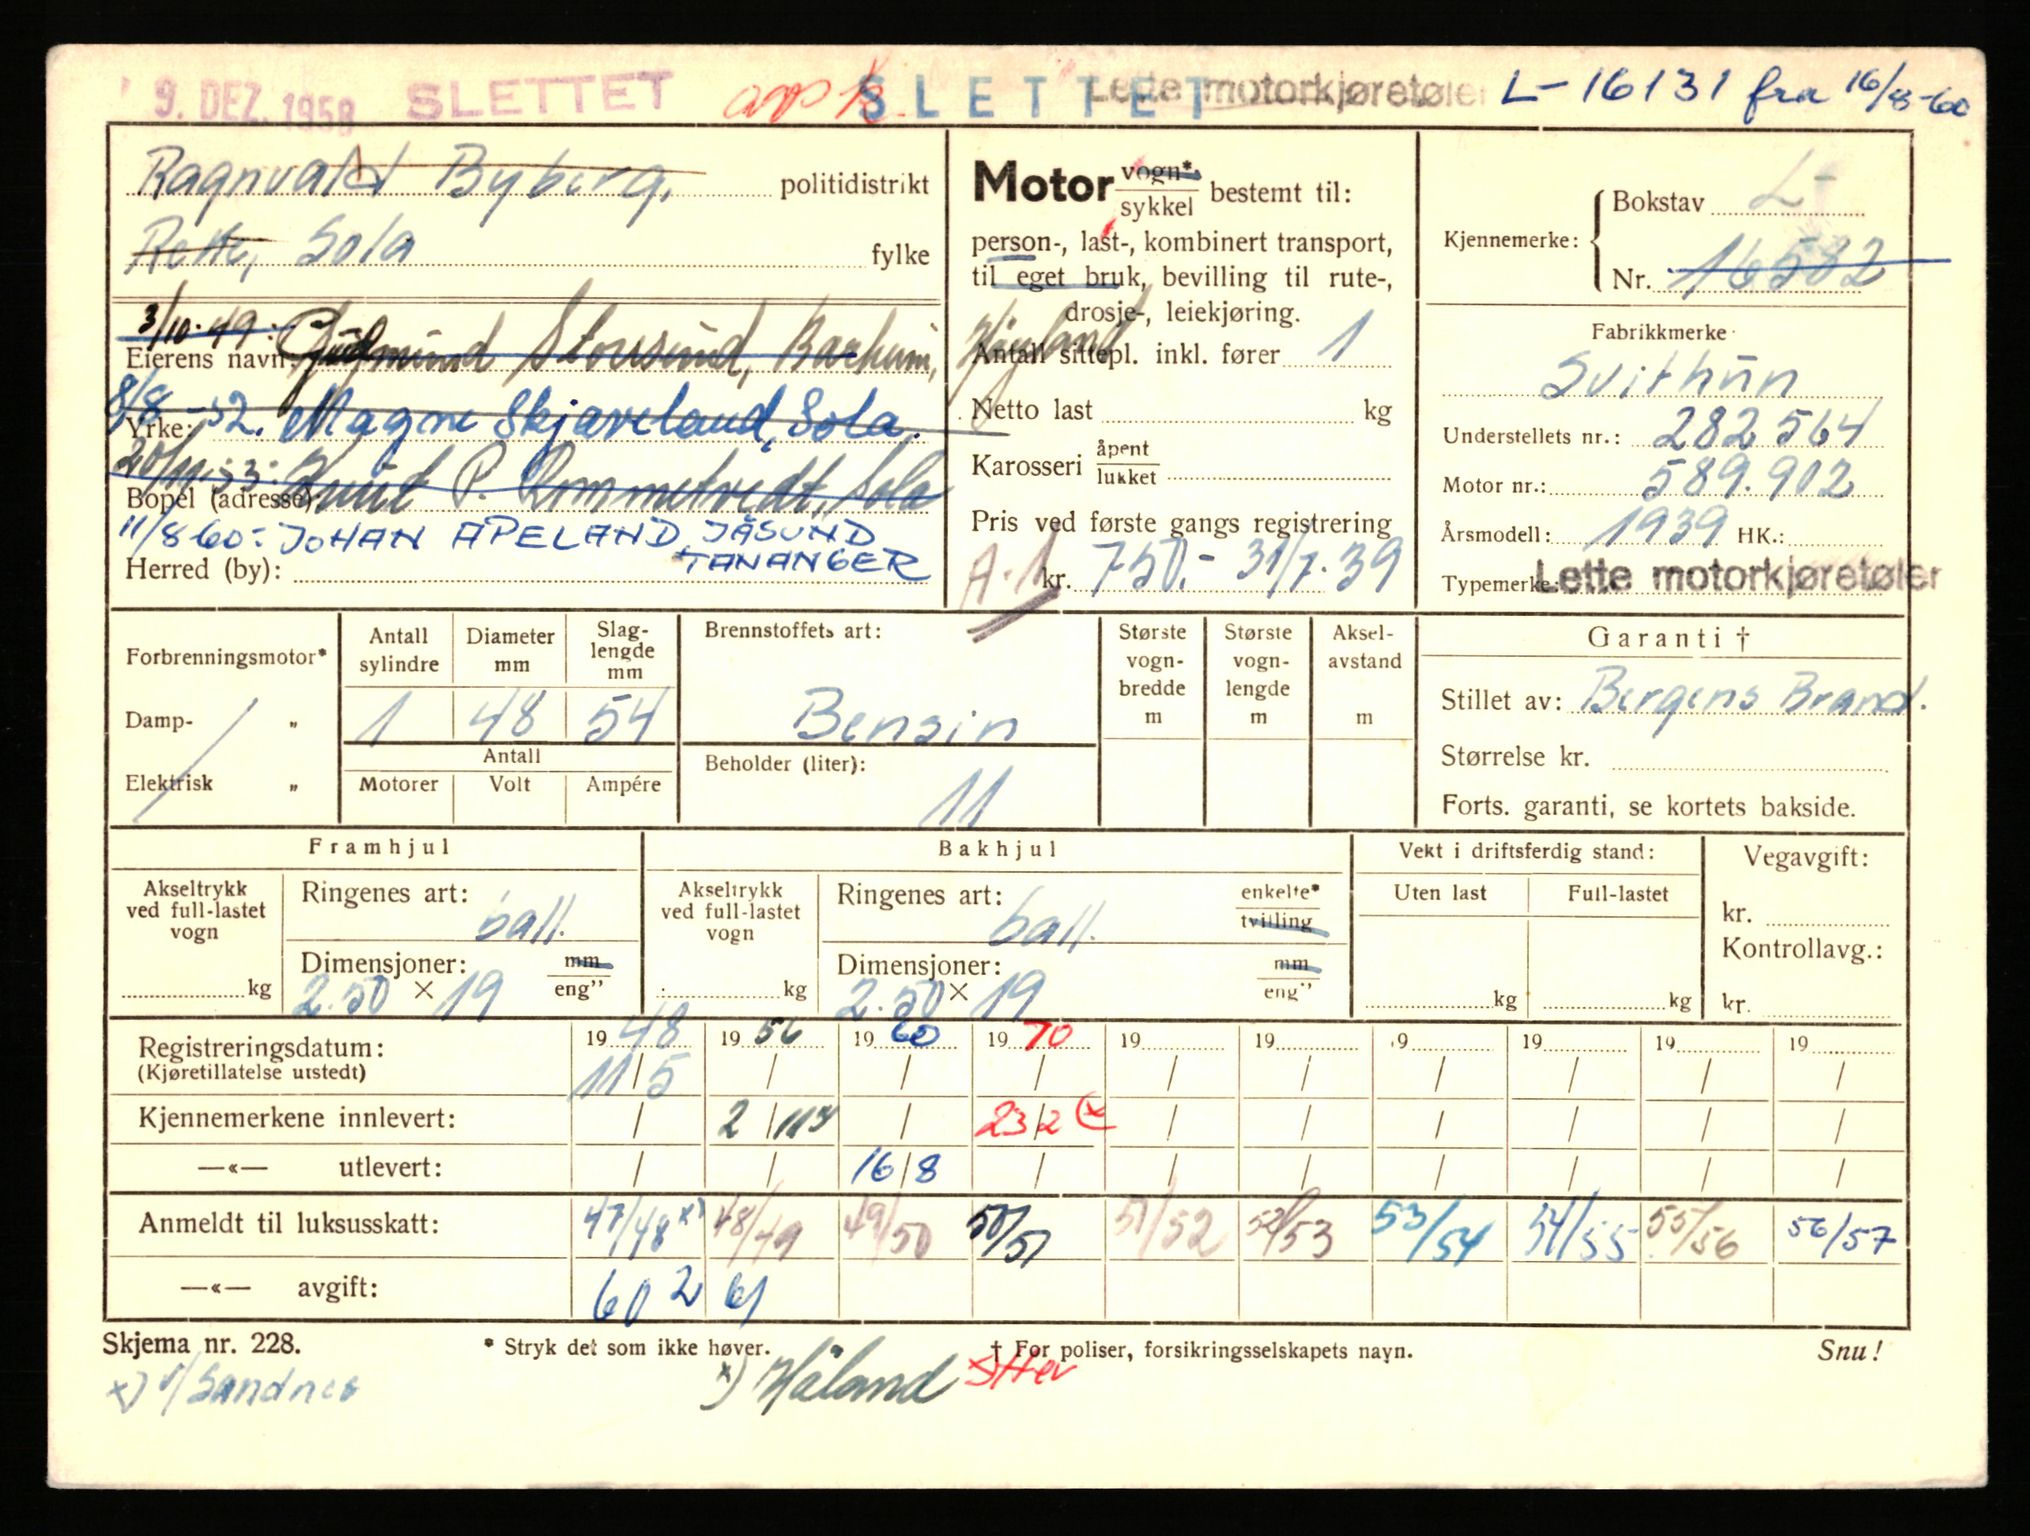 9. DEZ. 1958 SLETTET SLETTET Lette motorkjøretøier L-16131 fra 16/8-60
Ragnvald Byberg, politidistrikt
Sola fylke
3/10-49: Gudmund Storsund, Høyland
Eierens navn:
8/8-52. Magne Skjæveland, Sola.
Yrke:
20/11-53: Knut P. Rommetvedt, Sola
Bopel (adresse):
11/8 60: JOHAN APELAND, JÅSUND
TANANGER
Herred (by):
Motor vogn* / sykkel bestemt til:
person-, last-, kombinert transport,
til eget bruk, bevilling til rute-,
drosje-, leiekjøring.
Antall sittepl. inkl. fører 1
Netto last kg
Karosseri åpent / lukket
Pris ved første gangs registrering
A-1 kr. 750.- 31/7-39
Kjennemerke: Bokstav L-
Nr. 16582
Fabrikkmerke
Svithun
Understellets nr.: 282564
Motor nr.: 589.902
Årsmodell: 1939 HK.:
Typemerke: Lette motorkjøretøier
Forbrenningsmotor*
Damp- „
Elektrisk „
Antall sylindre Diameter mm Slag-lengde mm
1 48 54
Antall
Motorer Volt Ampére
Brennstoffets art:
Bensin
Beholder (liter):
11
Største vogn-bredde m
Største vogn-lengde m
Aksel-avstand m
Garanti †
Stillet av: Bergens Brand.
Størrelse kr.
Forts. garanti, se kortets bakside.
Framhjul
Akseltrykk ved full-lastet vogn kg
Ringenes art: ball.
Dimensjoner: mm / eng"
2.50 × 19
Bakhjul
Akseltrykk ved full-lastet vogn kg
Ringenes art: ball. enkelte* / tvilling
Dimensjoner: mm / eng"
2.50 × 19
Vekt i driftsferdig stand:
Uten last Full-lastet
kg kg
Vegavgift:
kr.
Kontrollavg.:
kr.
Registreringsdatum: 1948 1956 1960 1970 19 19 19 19 19 19
(Kjøretillatelse utstedt) 11/5 / / / / / / / / /
Kjennemerkene innlevert: / 2/11 / 23/2 / / / / / /
—«— utlevert: / / 16/8 / / / / / / /
Anmeldt til luksusskatt: 47/48 x) 48/49 49/50 50/51 51/52 52/53 53/54 54/55 55/56 56/57
—«— avgift: 60 2 61
Skjema nr. 228. * Stryk det som ikke høver. † For poliser, forsikringsselskapets navn. Snu!
x) v/Sandnes x) Håland